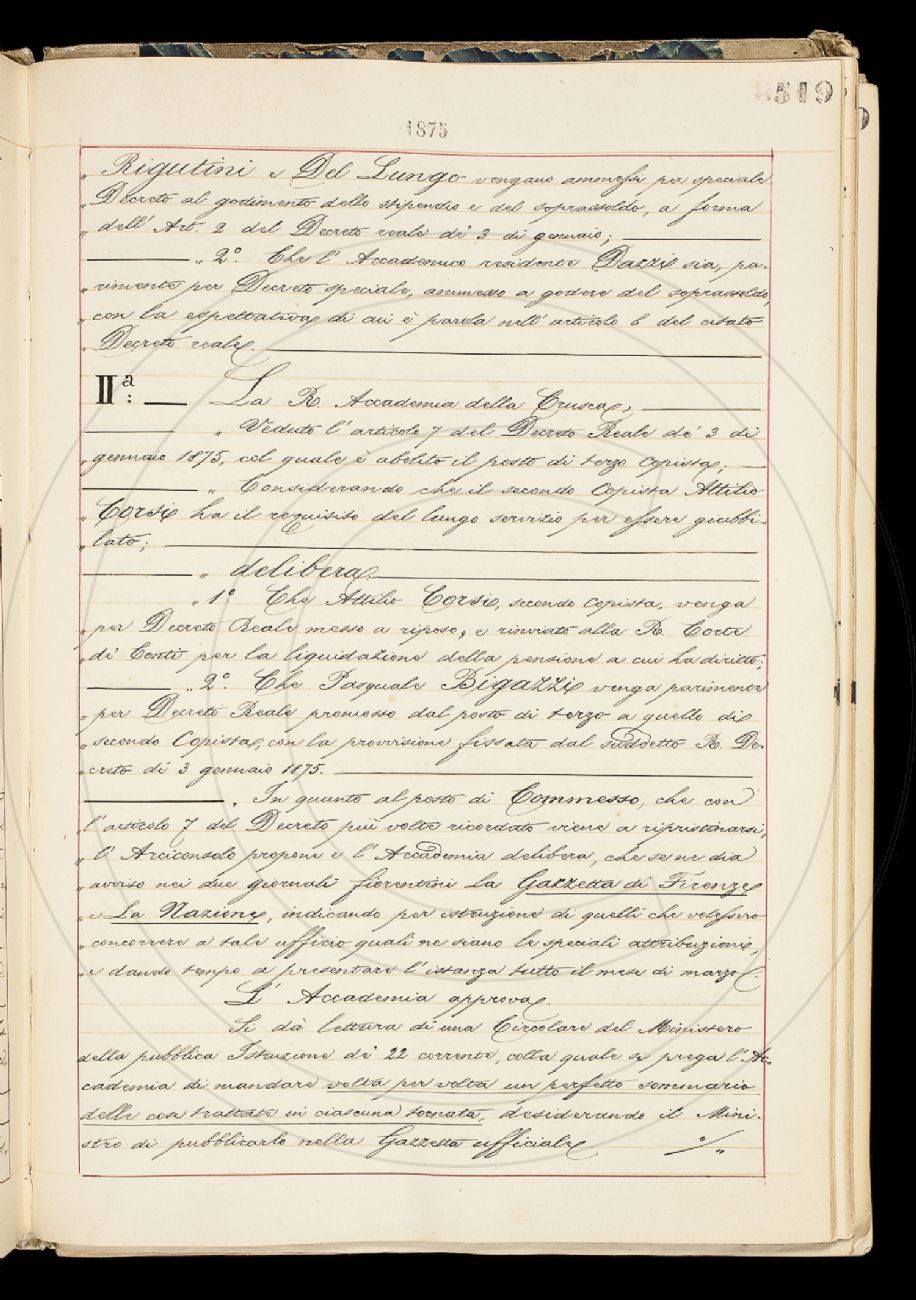 519
1875
„ Rigutini e Del Lungo vengano ammessi per speciale
„ Decreto al godimento dello stipendio e del soprassoldo, a forma
„ dell' Art. 2 del Decreto reale de' 3 di gennaio;
„ 2.° Che l' Accademico residente Dazzi sia, pa-
„ rimente per Decreto speciale, ammesso a godere del soprassoldo,
„ con la espettativa di cui è parola nell' articolo 6 del citato
„ Decreto reale.
IIª: La R. Accademia della Crusca,
„ Veduto l' articolo 7 del Decreto Reale de' 3 di
„ gennaio 1875, col quale è abolito il posto di terzo Copista;
„ Considerando che il secondo Copista Attilio
„ Corsi ha il requisito del lungo servizio per essere giubbi-
„ lato;
„ delibera
„ 1° Che Attilio Corsi, secondo Copista, venga
„ per Decreto Reale messo a riposo, e rinviato alla R. Corte
„ de' Conti per la liquidazione della pensione a cui ha diritto;
„ 2.° Che Pasquale Bigazzi venga parimente
„ per Decreto Reale promosso dal posto di terzo a quello di
„ secondo Copista, con la provvisione fissata dal suddetto R. De-
„ creto de' 3 gennaio 1875.
„ In quanto al posto di Commesso, che con
„ l' articolo 7 del Decreto più volte ricordato viene a ripristinarsi,
„ l' Arciconsolo propone e l' Accademia delibera, che se ne dia
„ avviso nei due giornali fiorentini La Gazzetta di Firenze
„ e La Nazione, indicando per istruzione di quelli che volessero
„ concorrere a tale ufficio quali ne siano le speciali attribuzioni,
„ e dando tempo a presentare l' istanza tutto il mese di marzo.
L' Accademia approva.
Si dà lettura di una Circolare del Ministero
della pubblica Istruzione de' 22 corrente, colla quale si prega l' Ac-
cademia di mandare volta per volta un perfetto sommario
delle cose trattate in ciascuna tornata, desiderando il Mini-
stro di pubblicarlo nella Gazzetta ufficiale. ./„